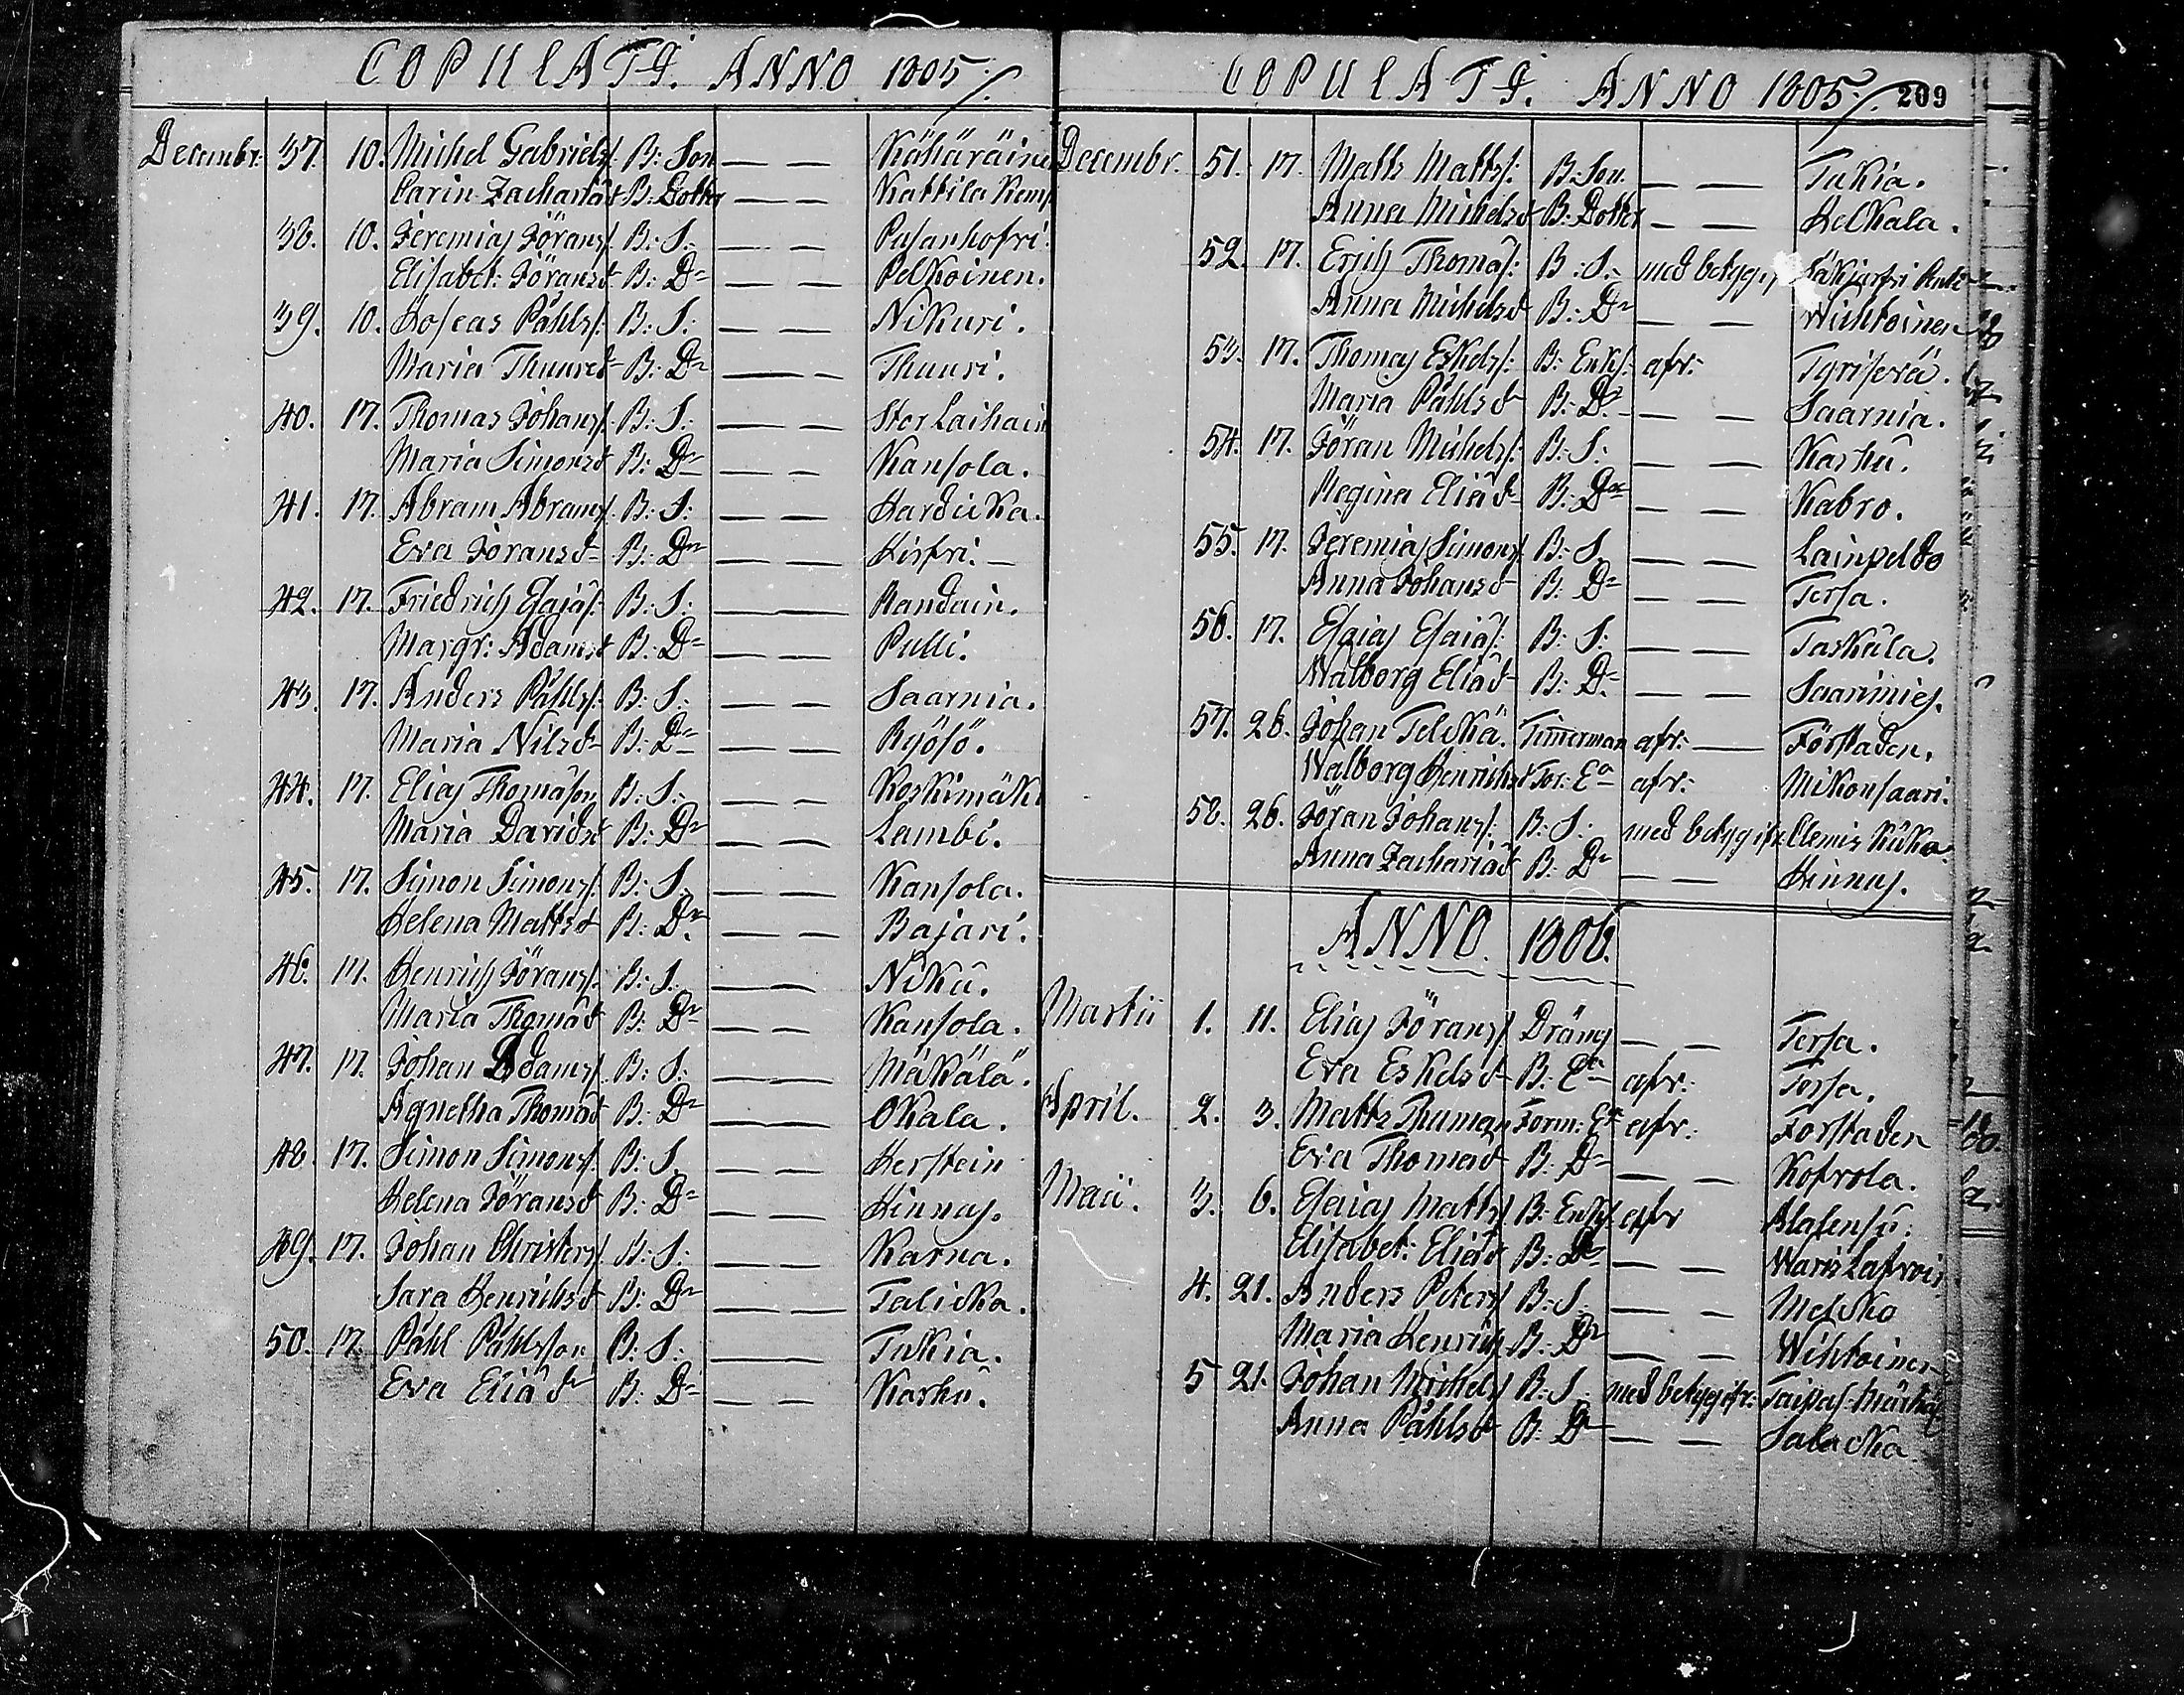 COPULATI. ANNO 1805.
Decembr. 37. 10. Michel Gabriels: B: Son — — Kähäräine
Carin Zachariæd B: Dotter — — Kattila
38. 10. Jeremias Jörans: B: S: — — Pasanhofri.
Elisabet: Jöransd B: Dr — — Pelkoinen.
39. 10. Hoseas Påhls: B: S: — — Nikuri.
Maria Thuured B: Dr — — Thuuri.
40. 17. Thomas Johans: B: S: — — Stor Laihain
Maria Simonsd B: Dr — — Kansola.
41. 17. Abram Abrams: B: S: — — Hardicka.
Eva Joransd B: Dr — — Hisfri. —
42. 17. Friedrich Esaiæs: B: S: — — Randain.
Margr: Adamsd B: Dr — — Pulli.
43. 17. Anders Påhls: B: S: — — Saarnia.
Maria Nilsd B: Dr — — Ryösö.
44. 17. Elias Thomason B: S: — — Koskimäki
Maria Davidsd B: Dr — — Lambi.
45. 17. Simon Simons: B: S. — — Kansola.
Helena Mattsd B: Dr — — Bajari.
46. 17. Henrich Jörans: B: S: — — Niku.
Maria Thomæd B: Dr — — Kansola.
47. 17. Johan Adams: B: S: — — Mäkälä.
Agnetha Thomæd B: Dr — — Okala.
48. 17. Simon Simons: B: S. — — Herstein
Helena Jöransd B: Dr — — Hinnus.
49. 17. Johan Christers: B: S: — — Karna.
Sara Henrichsd B: Dr — — Talicka.
50. 17. Påhl Påhlsson B: S: — — Tukia.
Eva Eliæd B: Dr — — Karhu.
COPULATI. ANNO 1805. 209
Decembr. 51. 17. Matts Matts: B: Son. — — Tukia.
Anna Michelsd B: Dotter — — Helkala.
52 17. Erich Thomæs: B: S: med betyg if
Anna Michelsd B: Dr — — Wichtoinen
53. 17. Thomas Eskels: B: Enkl: afr: Tyrisevä.
Maria Påhlsd B: Dr — — Saarnia.
54. 17. Jöran Michels: B: S: — — Karhu.
Regina Eliæd B: Dr — — Kabro.
55. 17. Jeremias Simons: B: S. — — Lainpeldo
Anna Johansd B: Dr — — Tersa.
56. 17. Esaias Esaiæs: B: S: — — Taskula.
Walborg Eliæd B: Dr — — Saarimies.
57. 26. Johan Telckä. Timerman afr: — Förstaden.
Walborg Henrichsd Tor: Ea afr: Mikonsaari.
58. 26. Jöran Johans: B: S: med betyg ifr. Clemis Kuka.
Anna Zachariæd B: Dr — — Hinnus.
ANNO. 1806.
Martii 1. 11. Elias Jörans: Dräng — — Tersa.
Eva Eskelsd B: Ea afr: Tersa.
April. 2. 3. Matts Thuman Torm: Ea afr: Forstaden
Eva Thomæd B: Dr — — Kofrola.
Maii. 3. 6. Esaias Matts: B: Enkl: afr Alasensu.
Elisabet: Eliæd B: Dr — —
4. 21. Anders Peters: B: S: — — Melcko
Maria Henrich B: Dr — — Wihtoinen
5 21. Johan Michels: B: S: med betyg ifr: Taipas
Anna Påhlsd B: Dr — — Salacka.